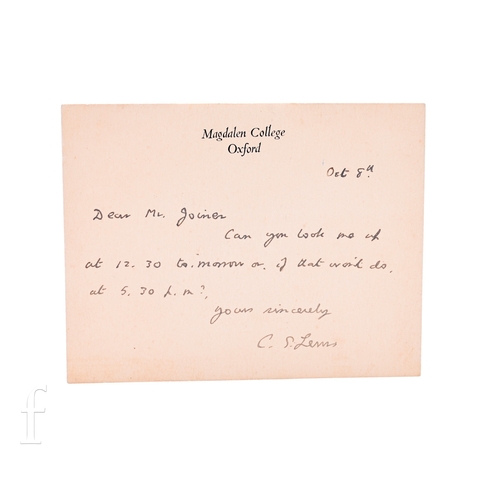 Magdalen College
Oxford
Oct 8th
Dear Mr. Joiner
Can you look me up
at 12.30 to-morrow or, if that won't do,
at 5.30 p.m?
yours sincerely
C. S. Lewis
f